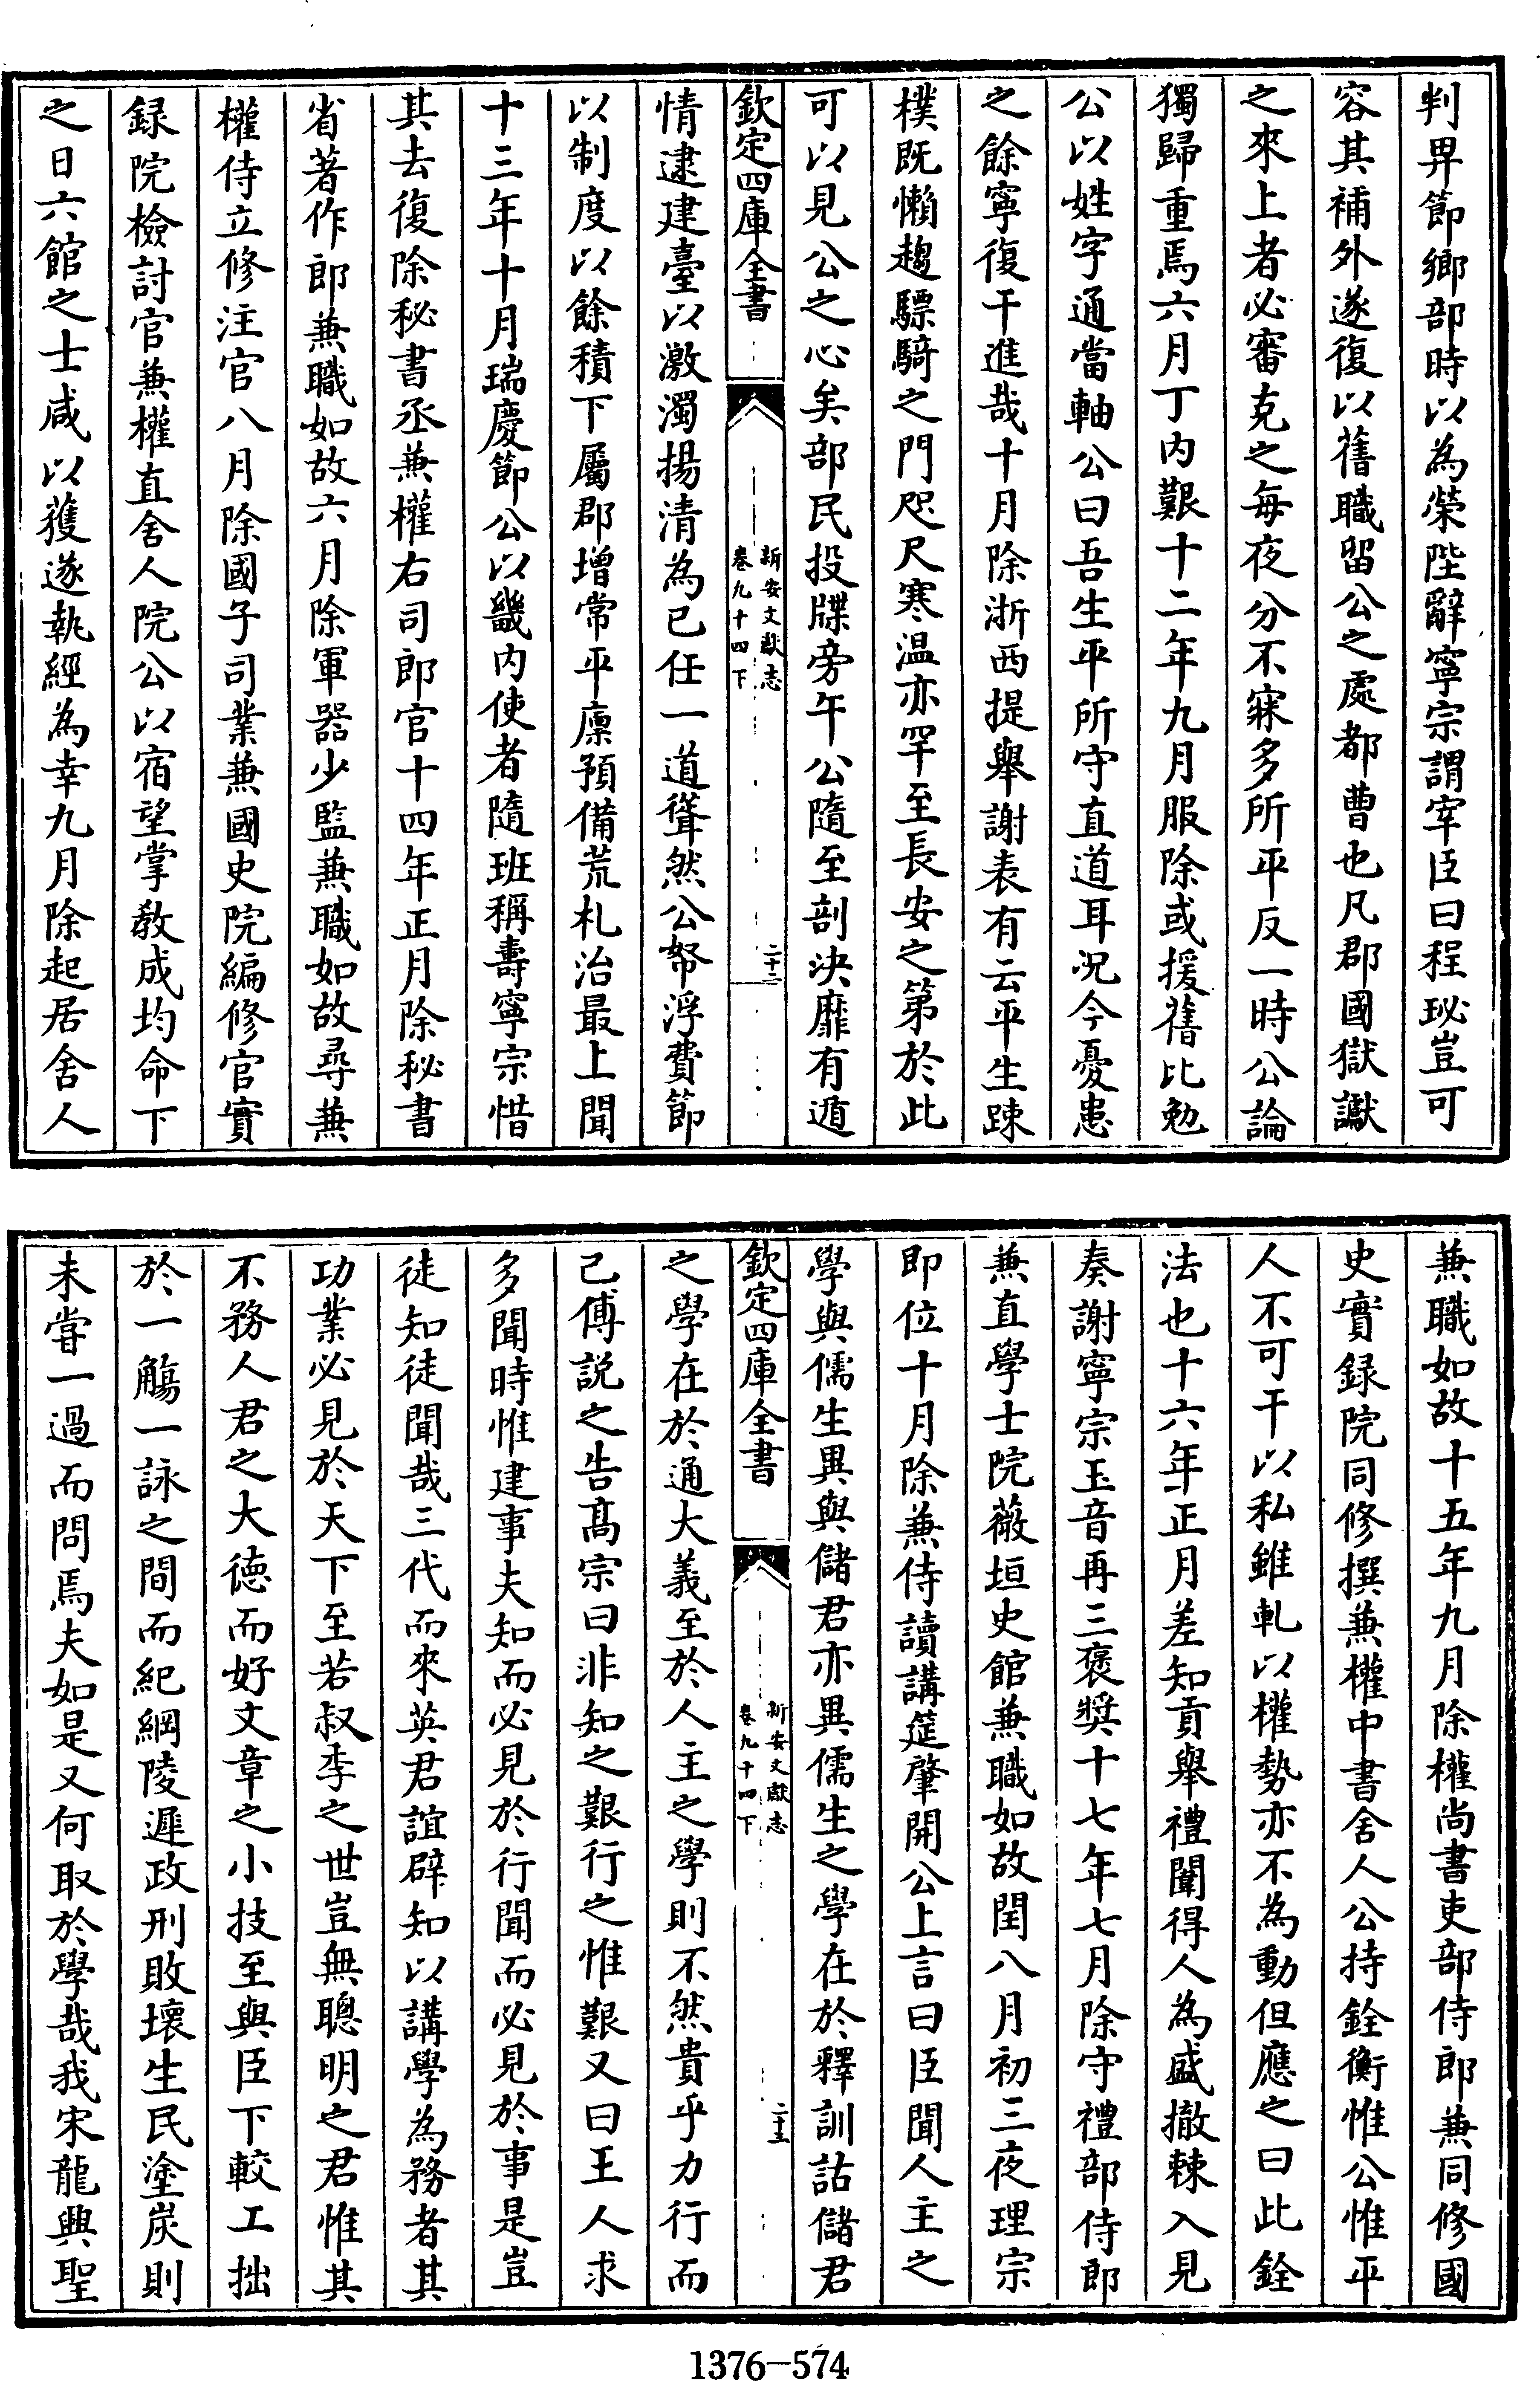 判畀節鄉部時以為榮陛辭寧宗謂宰臣曰程珌豈可
容其補外遂復以舊職留公之處都曹也凡郡國獄讞
之來上者必審克之每夜分不寐多所平反一時公論
獨歸重焉六月丁内艱十二年九月服除或援舊比勉
公以姓字通當軸公曰吾生平所守直道耳况今憂患
之餘寧復干進哉十月除浙西提舉謝表有云平生踈
樸既懶趨驃騎之門咫尺寒温亦罕至長安之第於此
可以見公之心矣部民投牒旁午公隨至剖決靡有遁
欽定四庫全書
新安文獻志
卷九十四下
二十二
情逮建臺以激濁揚清為已任一道聳然公帑浮費節
以制度以餘積下屬郡增常平廪預備荒札治最上聞
十三年十月瑞慶節公以畿内使者隨班稱壽寧宗惜
其去復除秘書丞兼權右司郎官十四年正月除秘書
省著作郎兼職如故六月除軍器少監兼職如故尋兼
權侍立修注官八月除國子司業兼國史院編修官實
録院檢討官兼權直舍人院公以宿望掌敎成均命下
之日六館之士咸以獲遂執經為幸九月除起居舍人
兼職如故十五年九月除權尚書吏部侍郎兼同修國
史實録院同修撰兼權中書舍人公持銓衡惟公惟平
人不可干以私雖軋以權勢亦不為動但應之曰此銓
法也十六年正月差知貢舉禮闈得人為盛撤棘入見
奏謝寧宗玉音再三褒奬十七年七月除守禮部侍郎
兼直學士院薇垣史館兼職如故閏八月初三夜理宗
即位十月除兼侍讀講筵肇開公上言曰臣聞人主之
學與儒生異與儲君亦異儒生之學在於釋訓詁儲君
欽定四庫全書
新安文獻志
卷九十四下
二十三
之學在於通大義至於人主之學則不然貴乎力行而
己傅説之告髙宗曰非知之艱行之惟艱又曰王人求
多聞時惟建事夫知而必見於行聞而必見於事是豈
徒知徒聞哉三代而來英君誼辟知以講學為務者其
功業必見於天下至若叔季之世豈無聰明之君惟其
不務人君之大徳而好文章之小技至與臣下較工拙
於一觴一詠之間而紀綱陵遲政刑敗壞生民塗炭則
未甞一過而問焉夫如是又何取於學哉我宋龍興聖
1376—574